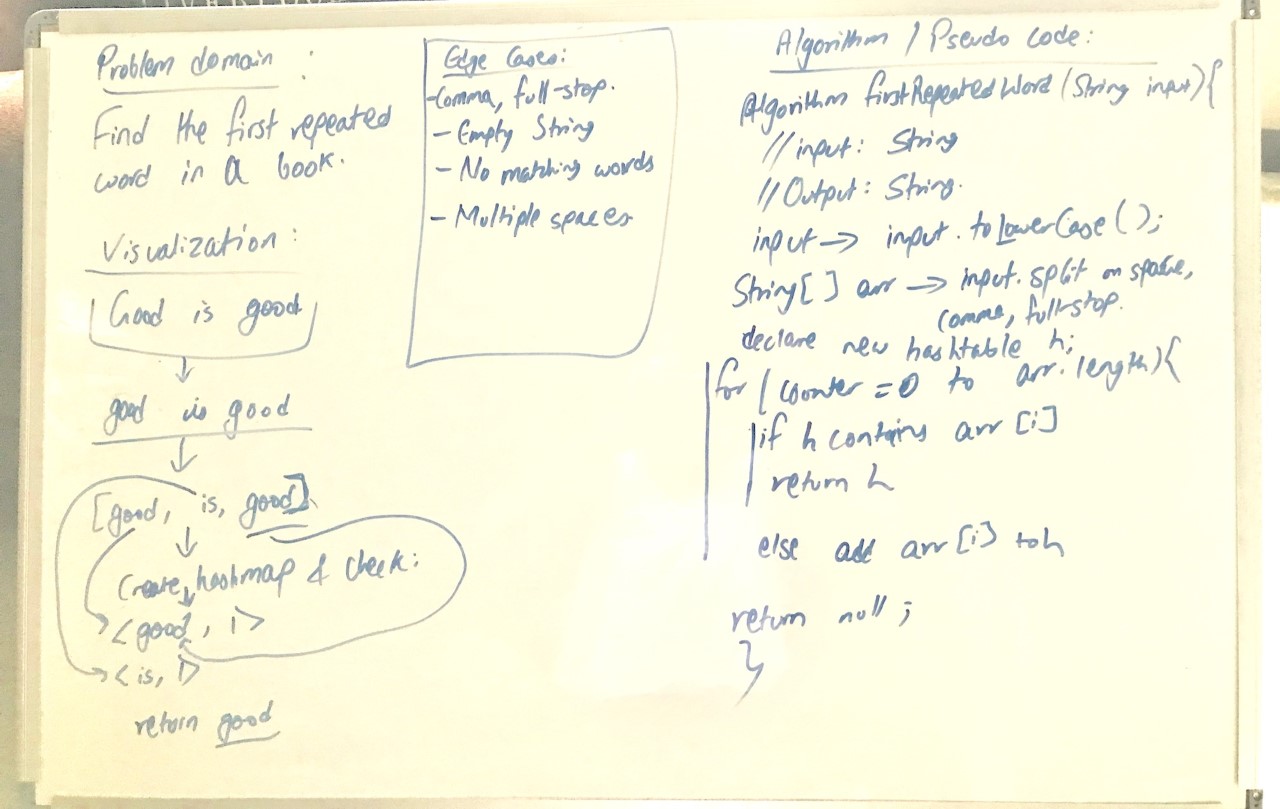 Problem domain :
Find the first repeated
word in a book.
Visualization :
Good is good
good is good
[good, is, good]
Create hashmap & check:
<good, 1>
<is, 1>
return good
Edge Cases:
-Comma, full-stop.
- Empty String
- No matching words
- Multiple spaces
Algorithm / Pseudo code:
Algorithm firstRepeatedWord (String input){
//input: String
//Output: String.
input → input.toLowerCase();
String[] arr → input.split on space,
comma, full-stop.
declare new hashtable h;
for (counter = 0 to arr.length){
if h contains arr[i]
return h
else add arr[i] to h
return null;
}